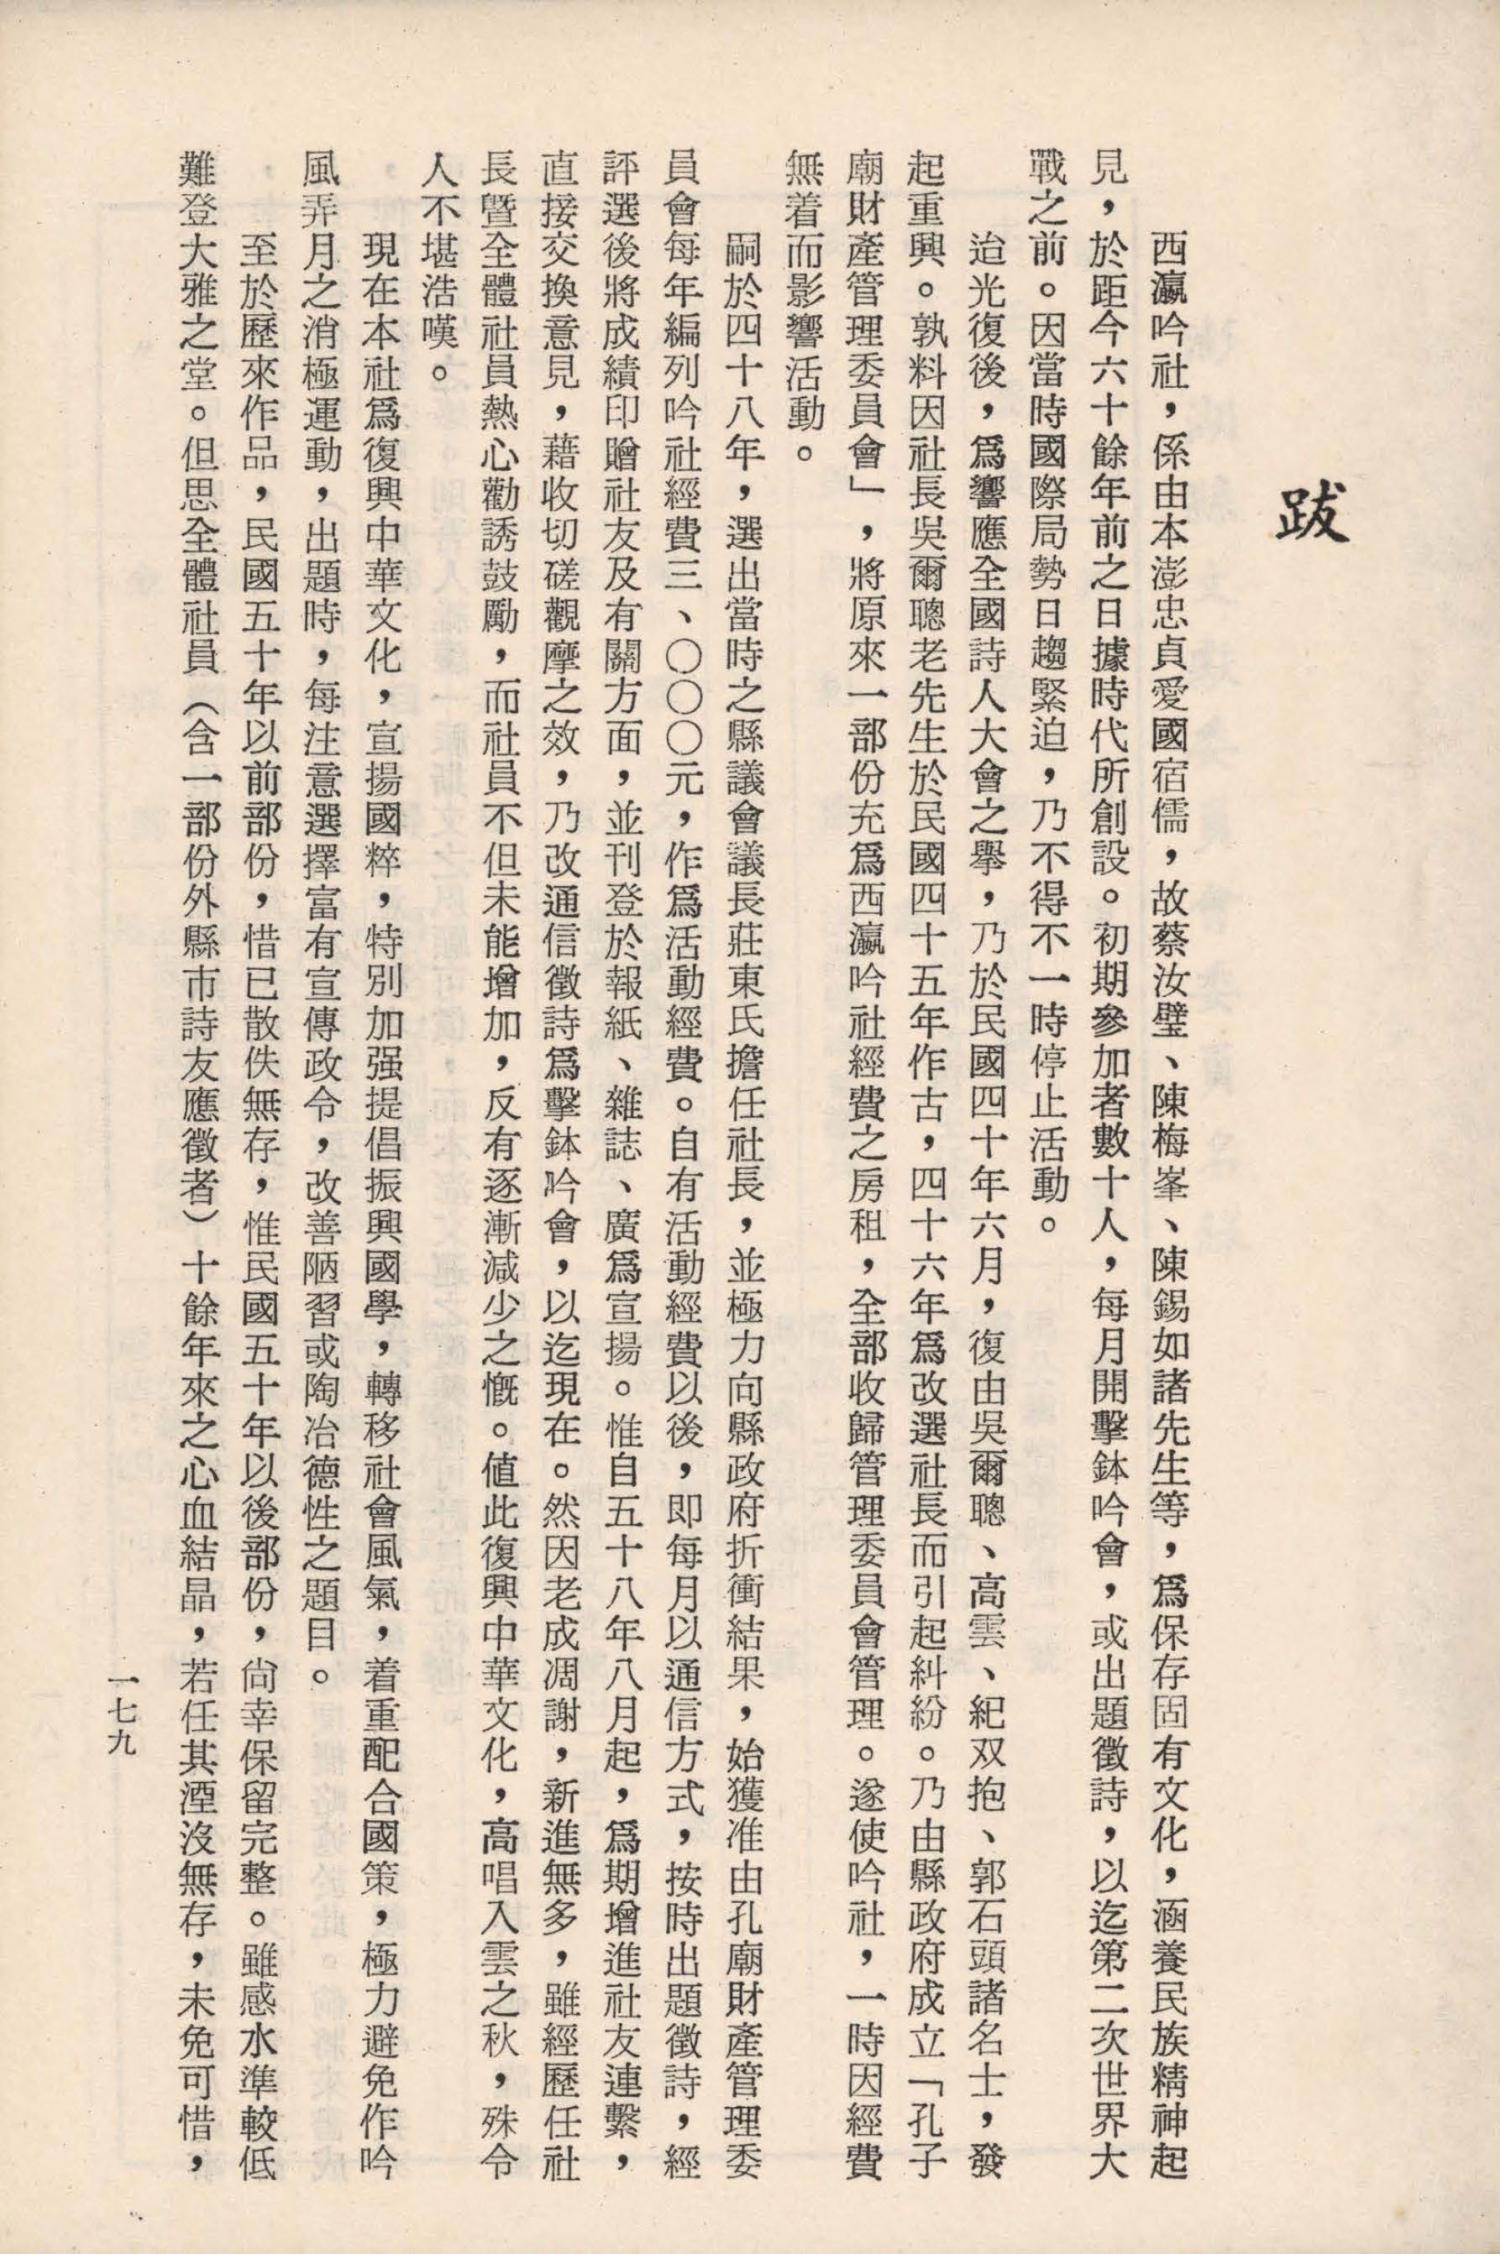 跋
西瀛吟社，係由本澎忠貞愛國宿儒，故蔡汝璧、陳梅峯、陳錫如諸先生等，爲保存固有文化，涵養民族精神起
見，於距今六十餘年前之日據時代所創設。初期參加者數十人，每月開擊鉢吟會，或出題徵詩，以迄第二次世界大
戰之前。因當時國際局勢日趨緊迫，乃不得不一時停止活動。
迨光復後，爲響應全國詩人大會之擧，乃於民國四十年六月，復由吳爾聰、高雲、紀双抱、郭石頭諸名士，發
起重興。孰料因社長吳爾聰老先生於民國四十五年作古，四十六年爲改選社長而引起糾紛。乃由縣政府成立「孔子
廟財產管理委員會」，將原來一部份充爲西瀛吟社經費之房租，全部收歸管理委員會管理。遂使吟社，一時因經費
無着而影響活動。
嗣於四十八年，選出當時之縣議會議長莊東氏擔任社長，並極力向縣政府折衝結果，始獲准由孔廟財產管理委
員會每年編列吟社經費三、〇〇〇元，作爲活動經費。自有活動經費以後，即每月以通信方式，按時出題徵詩，經
評選後將成績印贈社友及有關方面，並刊登於報紙、雜誌、廣爲宣揚。惟自五十八年八月起，爲期增進社友連繫，
直接交換意見，藉收切磋觀摩之效，乃改通信徵詩爲擊鉢吟會，以迄現在。然因老成凋謝，新進無多，雖經歷任社
長暨全體社員熱心勸誘鼓勵，而社員不但未能增加，反有逐漸減少之慨。値此復興中華文化，高唱入雲之秋，殊令
人不堪浩嘆。
現在本社爲復興中華文化，宣揚國粹，特別加强提倡振興國學，轉移社會風氣，着重配合國策，極力避免作吟
風弄月之消極運動，出題時，每注意選擇富有宣傳政令，改善陋習或陶冶德性之題目。
至於歷來作品，民國五十年以前部份，惜已散佚無存，惟民國五十年以後部份，尙幸保留完整。雖感水準較低
難登大雅之堂。但思全體社員（含一部份外縣市詩友應徵者）十餘年來之心血結晶，若任其湮沒無存，未免可惜，
一七九